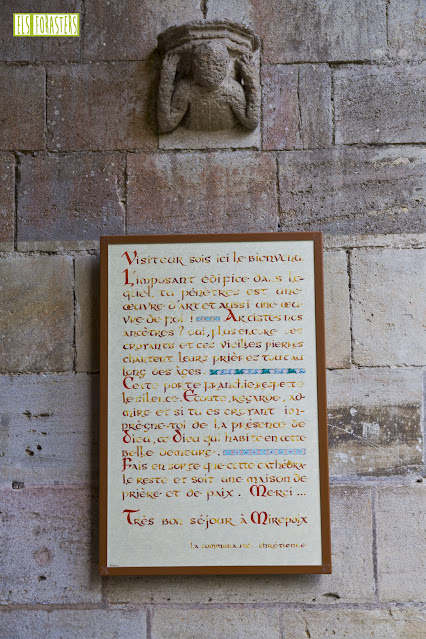 ELS FORASTERS
Visiteur sois ici le bienvenu.
L'imposant édifice dans le
quel tu pénètres est une
œuvre d'art et aussi une œu
vre de foi ! Artistes nos
ancêtres ? oui, plus encore : et
croyants et ces vieilles pierres
chantent leurs prières tout au
long des âges.
Cette porte franchie, respecte
le silence. Ecoute, regarde, ad-
mire et si tu es croyant im-
prègne-toi de la présence de
Dieu, ce Dieu qui habite en cette
belle demeure.
Fais en sorte que cette cathédra-
le reste et soit une maison de
prière et de paix. Merci...
Très bon séjour à Mirepoix
la communauté chrétienne